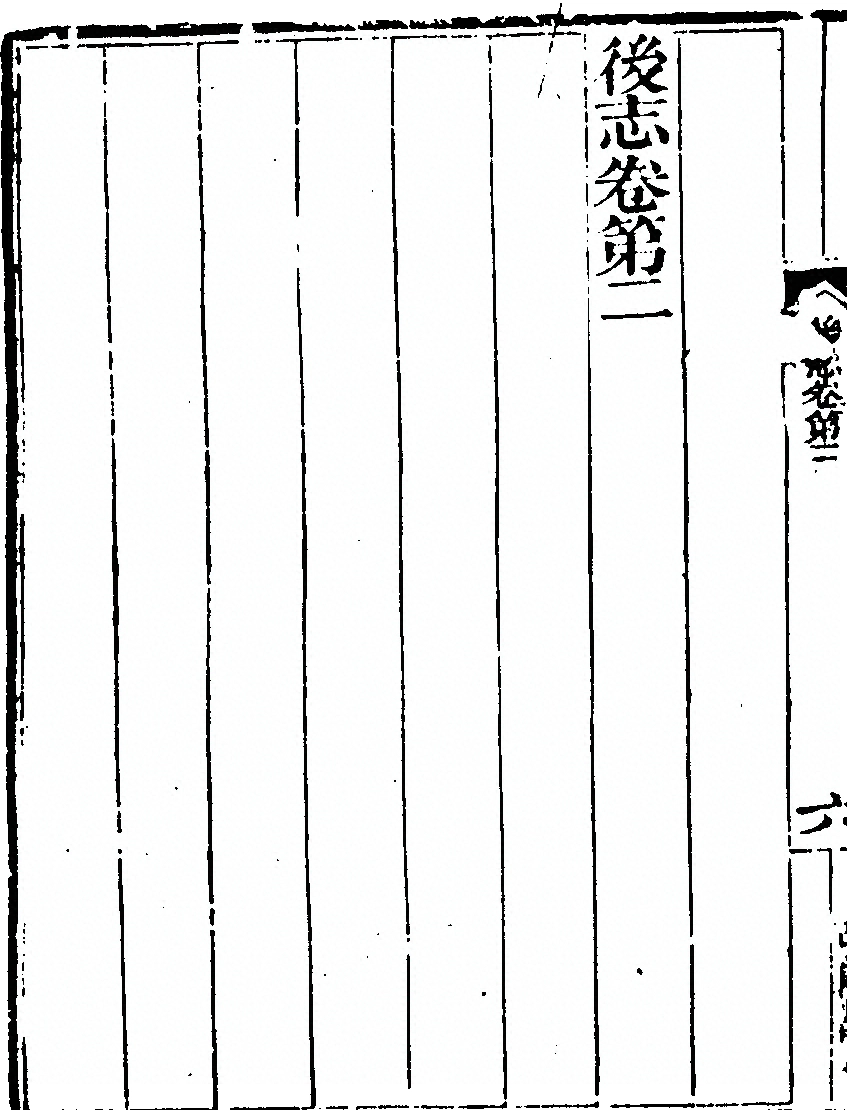 後志卷第二
志卷第二
六